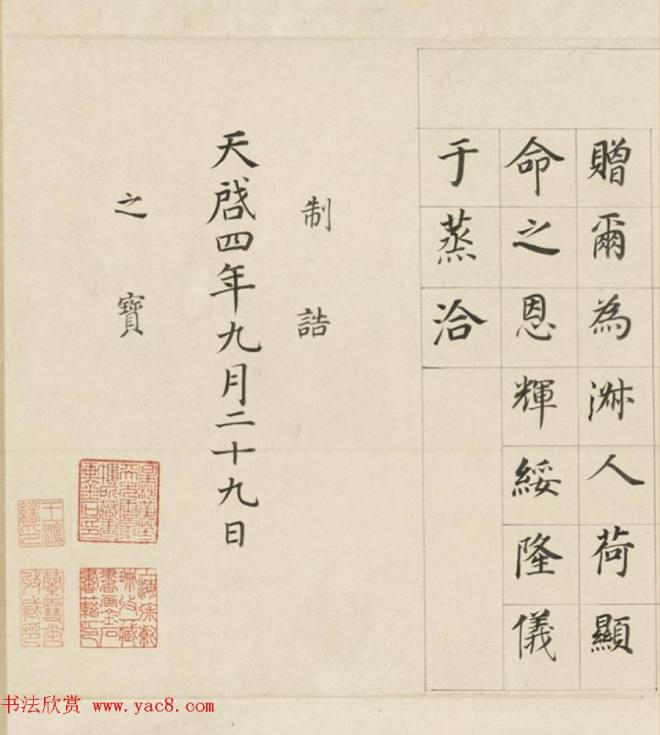 贈爾為淋人荷顯
命之恩輝綏隆儀
于蒸洽
制誥
天啓四年九月二十九日
之寶
书法欣赏 www.yac8.com